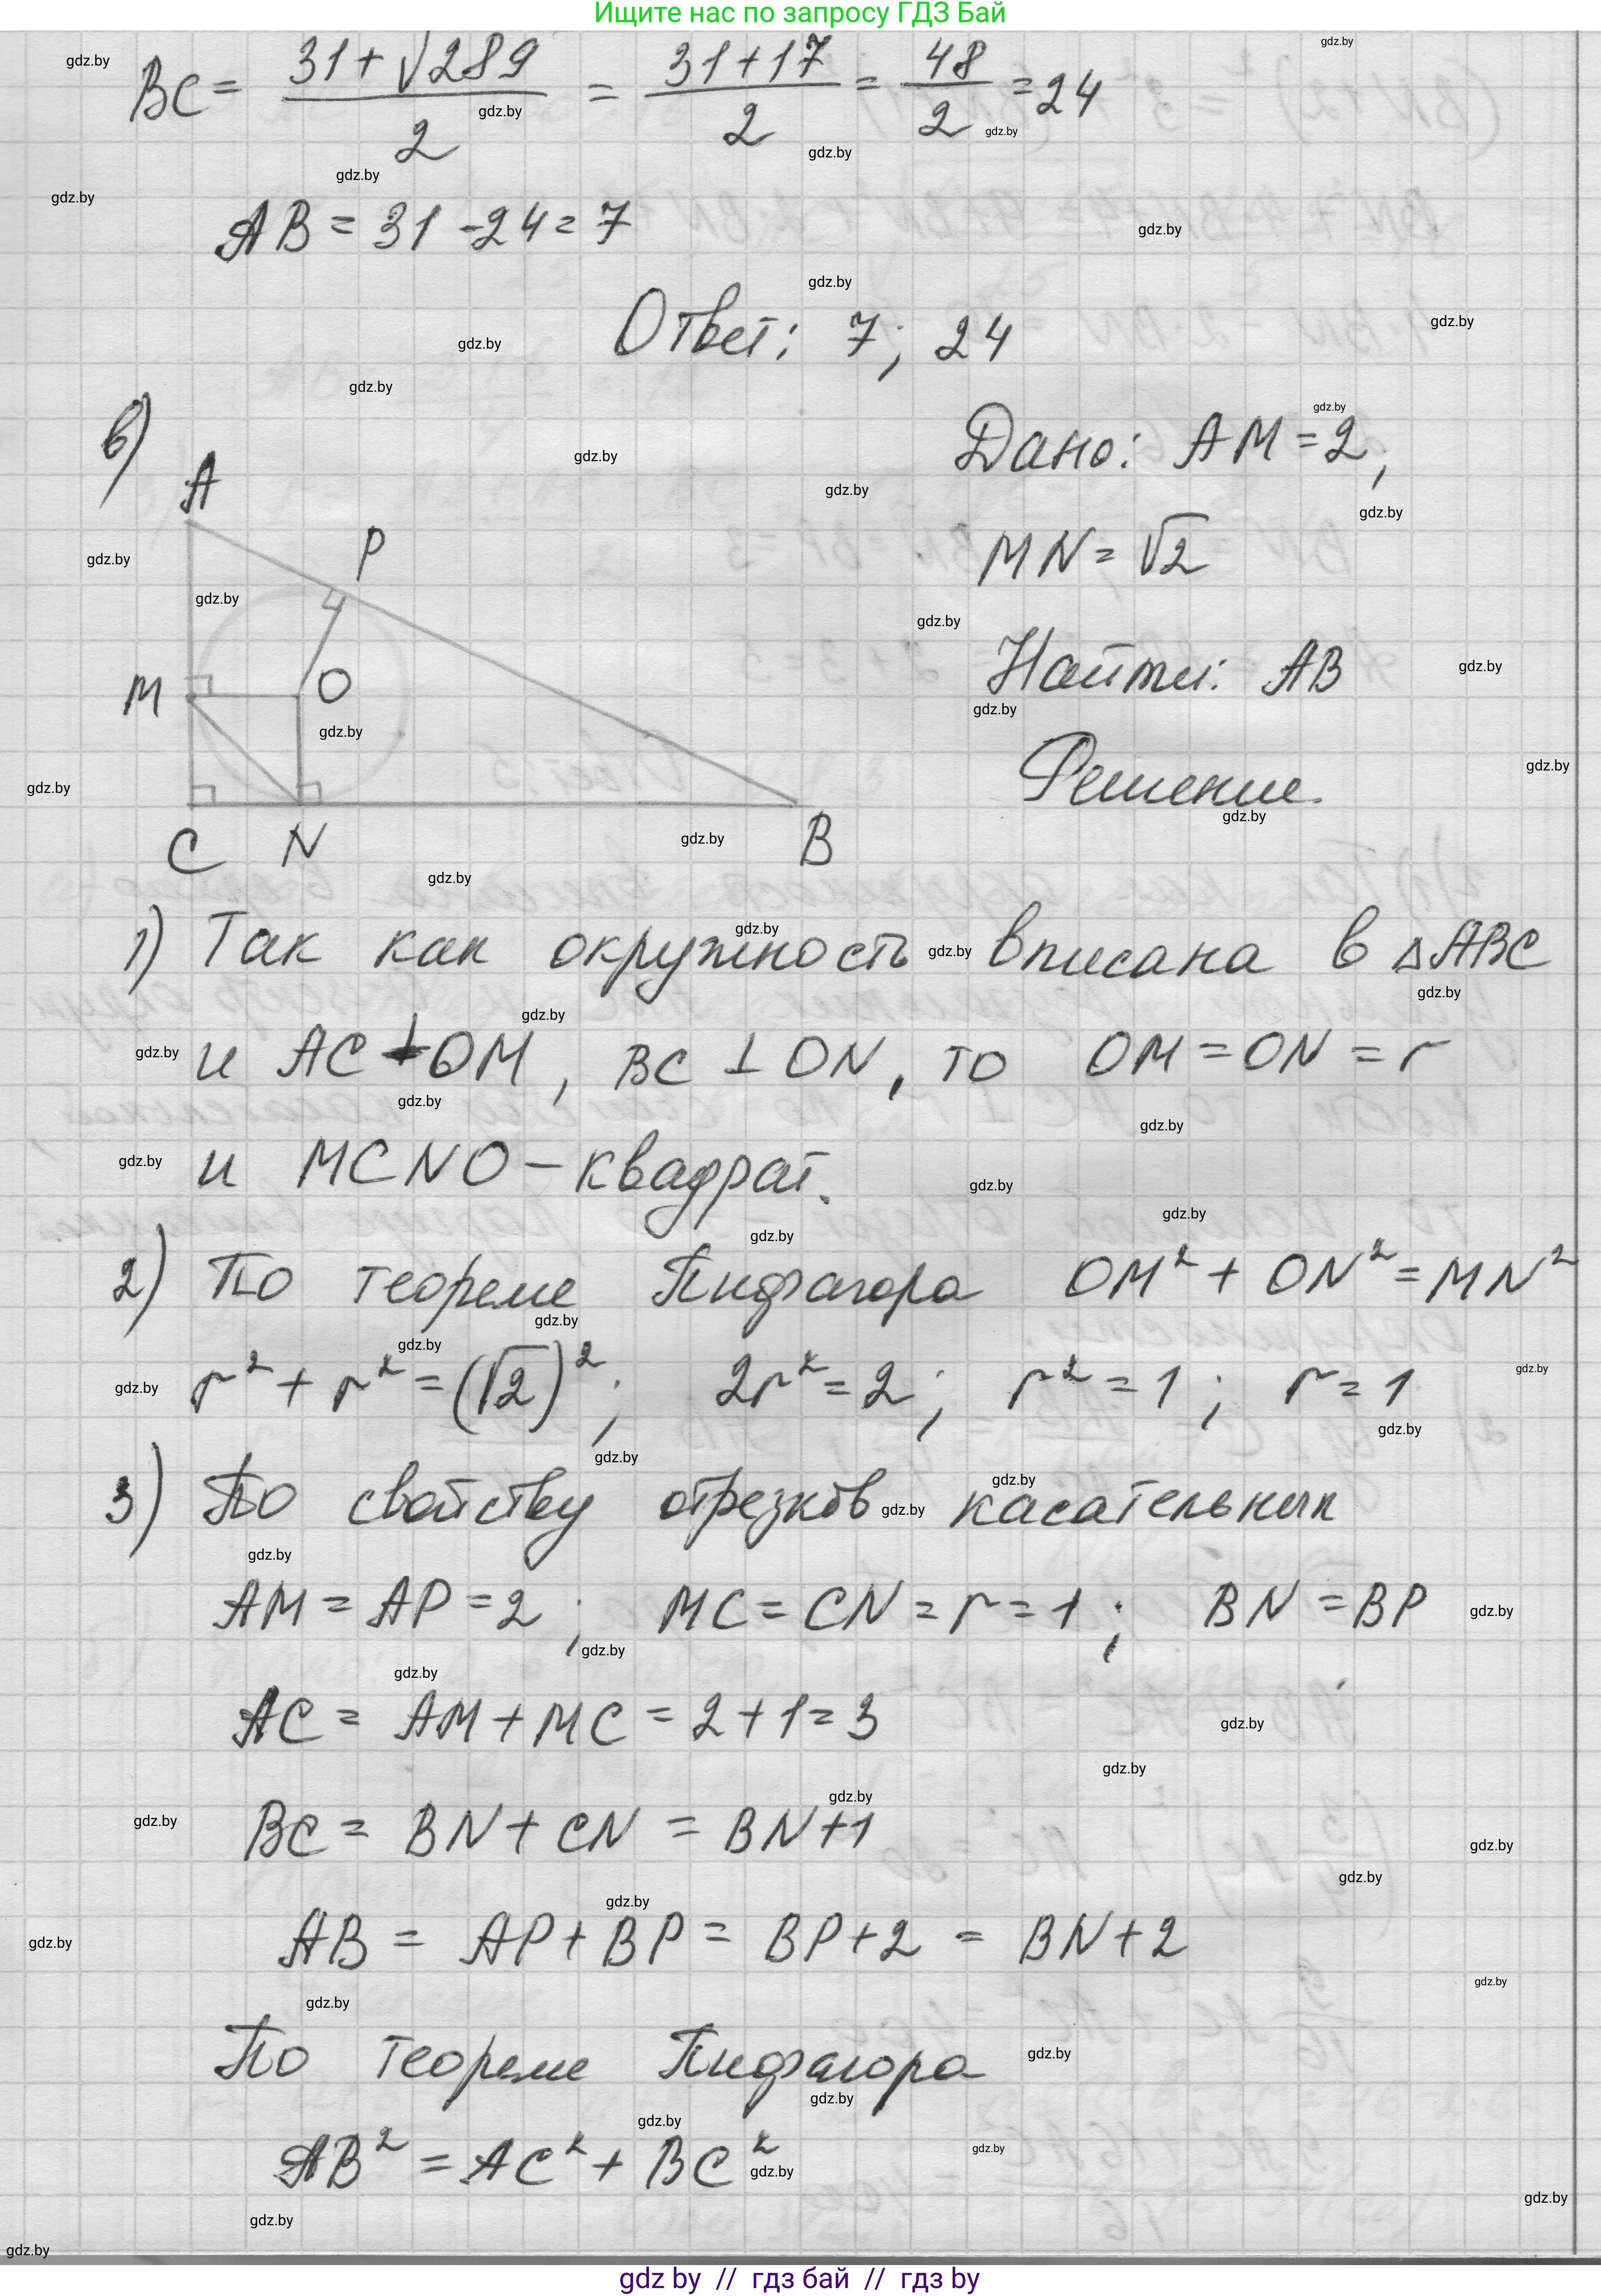 Ищите нас по запросу ГДЗ Бай
BC = (31+√289)/2 = (31+17)/2 = 48/2 = 24
AB = 31 - 24 = 7
Ответ: 7; 24
в)
Дано: AM = 2;
MN = √2
Найти: AB
Решение.
A
P
M
O
C
N
B
1) Так как окружность вписана в △ABC
и AC ⊥ OM, BC ⊥ ON, то OM = ON = r
и MCNO - квадрат.
2) По теореме Пифагора OM² + ON² = MN²
r² + r² = (√2)²; 2r² = 2; r² = 1; r = 1
3) По свойству отрезков касательных
AM = AP = 2; MC = CN = r = 1; BN = BP
AC = AM + MC = 2 + 1 = 3
BC = BN + CN = BN + 1
AB = AP + BP = BP + 2 = BN + 2
По теореме Пифагора
AB² = AC² + BC²
gdz.by
gdz by // гдз бай // гдз by